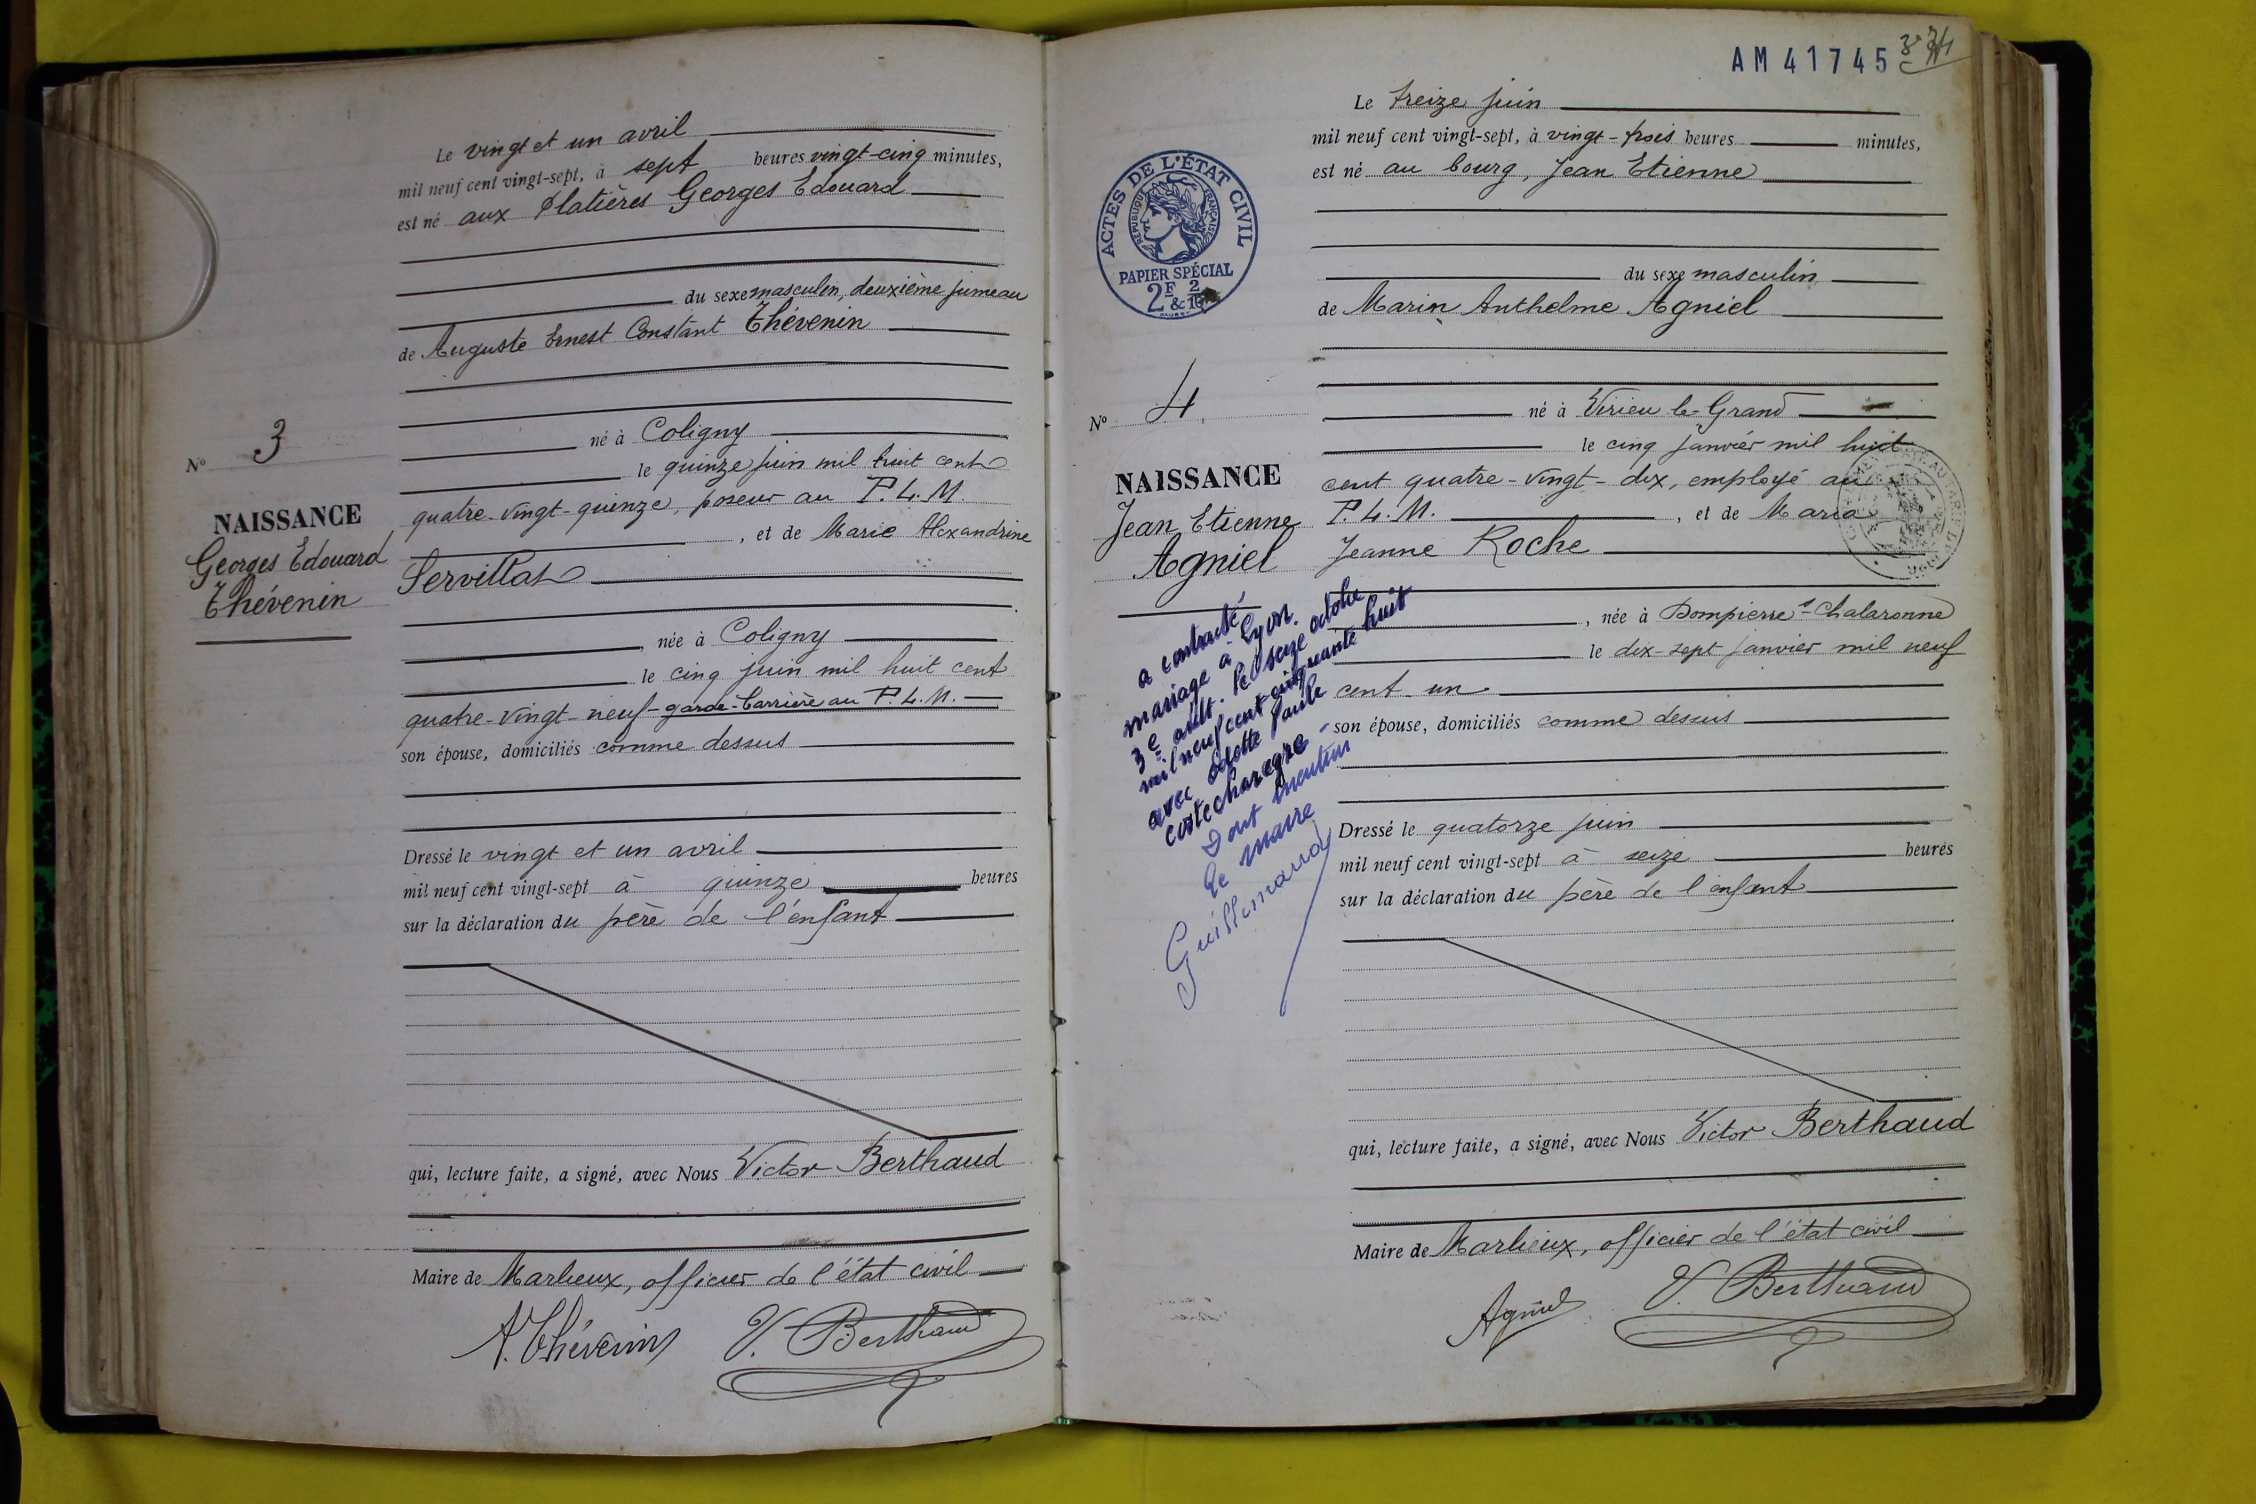 Le vingt et un avril
mil neuf cent vingt-sept, à sept heures vingt-cinq minutes,
est né aux Platières Georges Edouard
du sexe masculin, deuxième jumeau
de Auguste Ernest Constant Thévenin
né à Coligny
le quinze juin mil huit cent
quatre-vingt-quinze, poseur au P.L.M.
, et de Marie Alexandrine
Servillat
, née à Coligny
le cinq juin mil huit cent
quatre-vingt-neuf-garde-barrière au P.L.M.
son épouse, domiciliés comme dessus
Dressé le vingt et un avril
mil neuf cent vingt-sept à quinze heures
sur la déclaration du père de l'enfant
qui, lecture faite, a signé, avec Nous Victor Berthaud
Maire de Marlieux, officier de l'état civil
A. Thévenin V. Berthaud
No 3
NAISSANCE
Georges Edouard
Thévenin
AM 41745
Le treize juin
mil neuf cent vingt-sept, à vingt-trois heures minutes,
est né au bourg, Jean Etienne
du sexe masculin
de Marin Anthelme Agniel
né à Virieu-le-Grand
le cinq janvier mil huit
cent quatre-vingt-dix, employé au
P.L.M. , et de Maria
Jeanne Roche
, née à Dompierre s-Chalaronne
le dix-sept janvier mil neuf
cent un
son épouse, domiciliés comme dessus
Dressé le quatorze juin
mil neuf cent vingt-sept à seize heures
sur la déclaration du père de l'enfant
qui, lecture faite, a signé, avec Nous Victor Berthaud
Maire de Marlieux, officier de l'état civil
Agniel V. Berthaud
ACTES DE L'ÉTAT CIVIL
RÉPUBLIQUE FRANÇAISE
PAPIER SPÉCIAL
2F & 2/10
No 4
NAISSANCE
Jean Etienne
Agniel
a contracté
mariage à Lyon.
3e ardt. le seize octobre
mil neuf cent cinquante huit
avec Odette Paule
Costechareyre
Dont mention
Le maire
Guillemaud